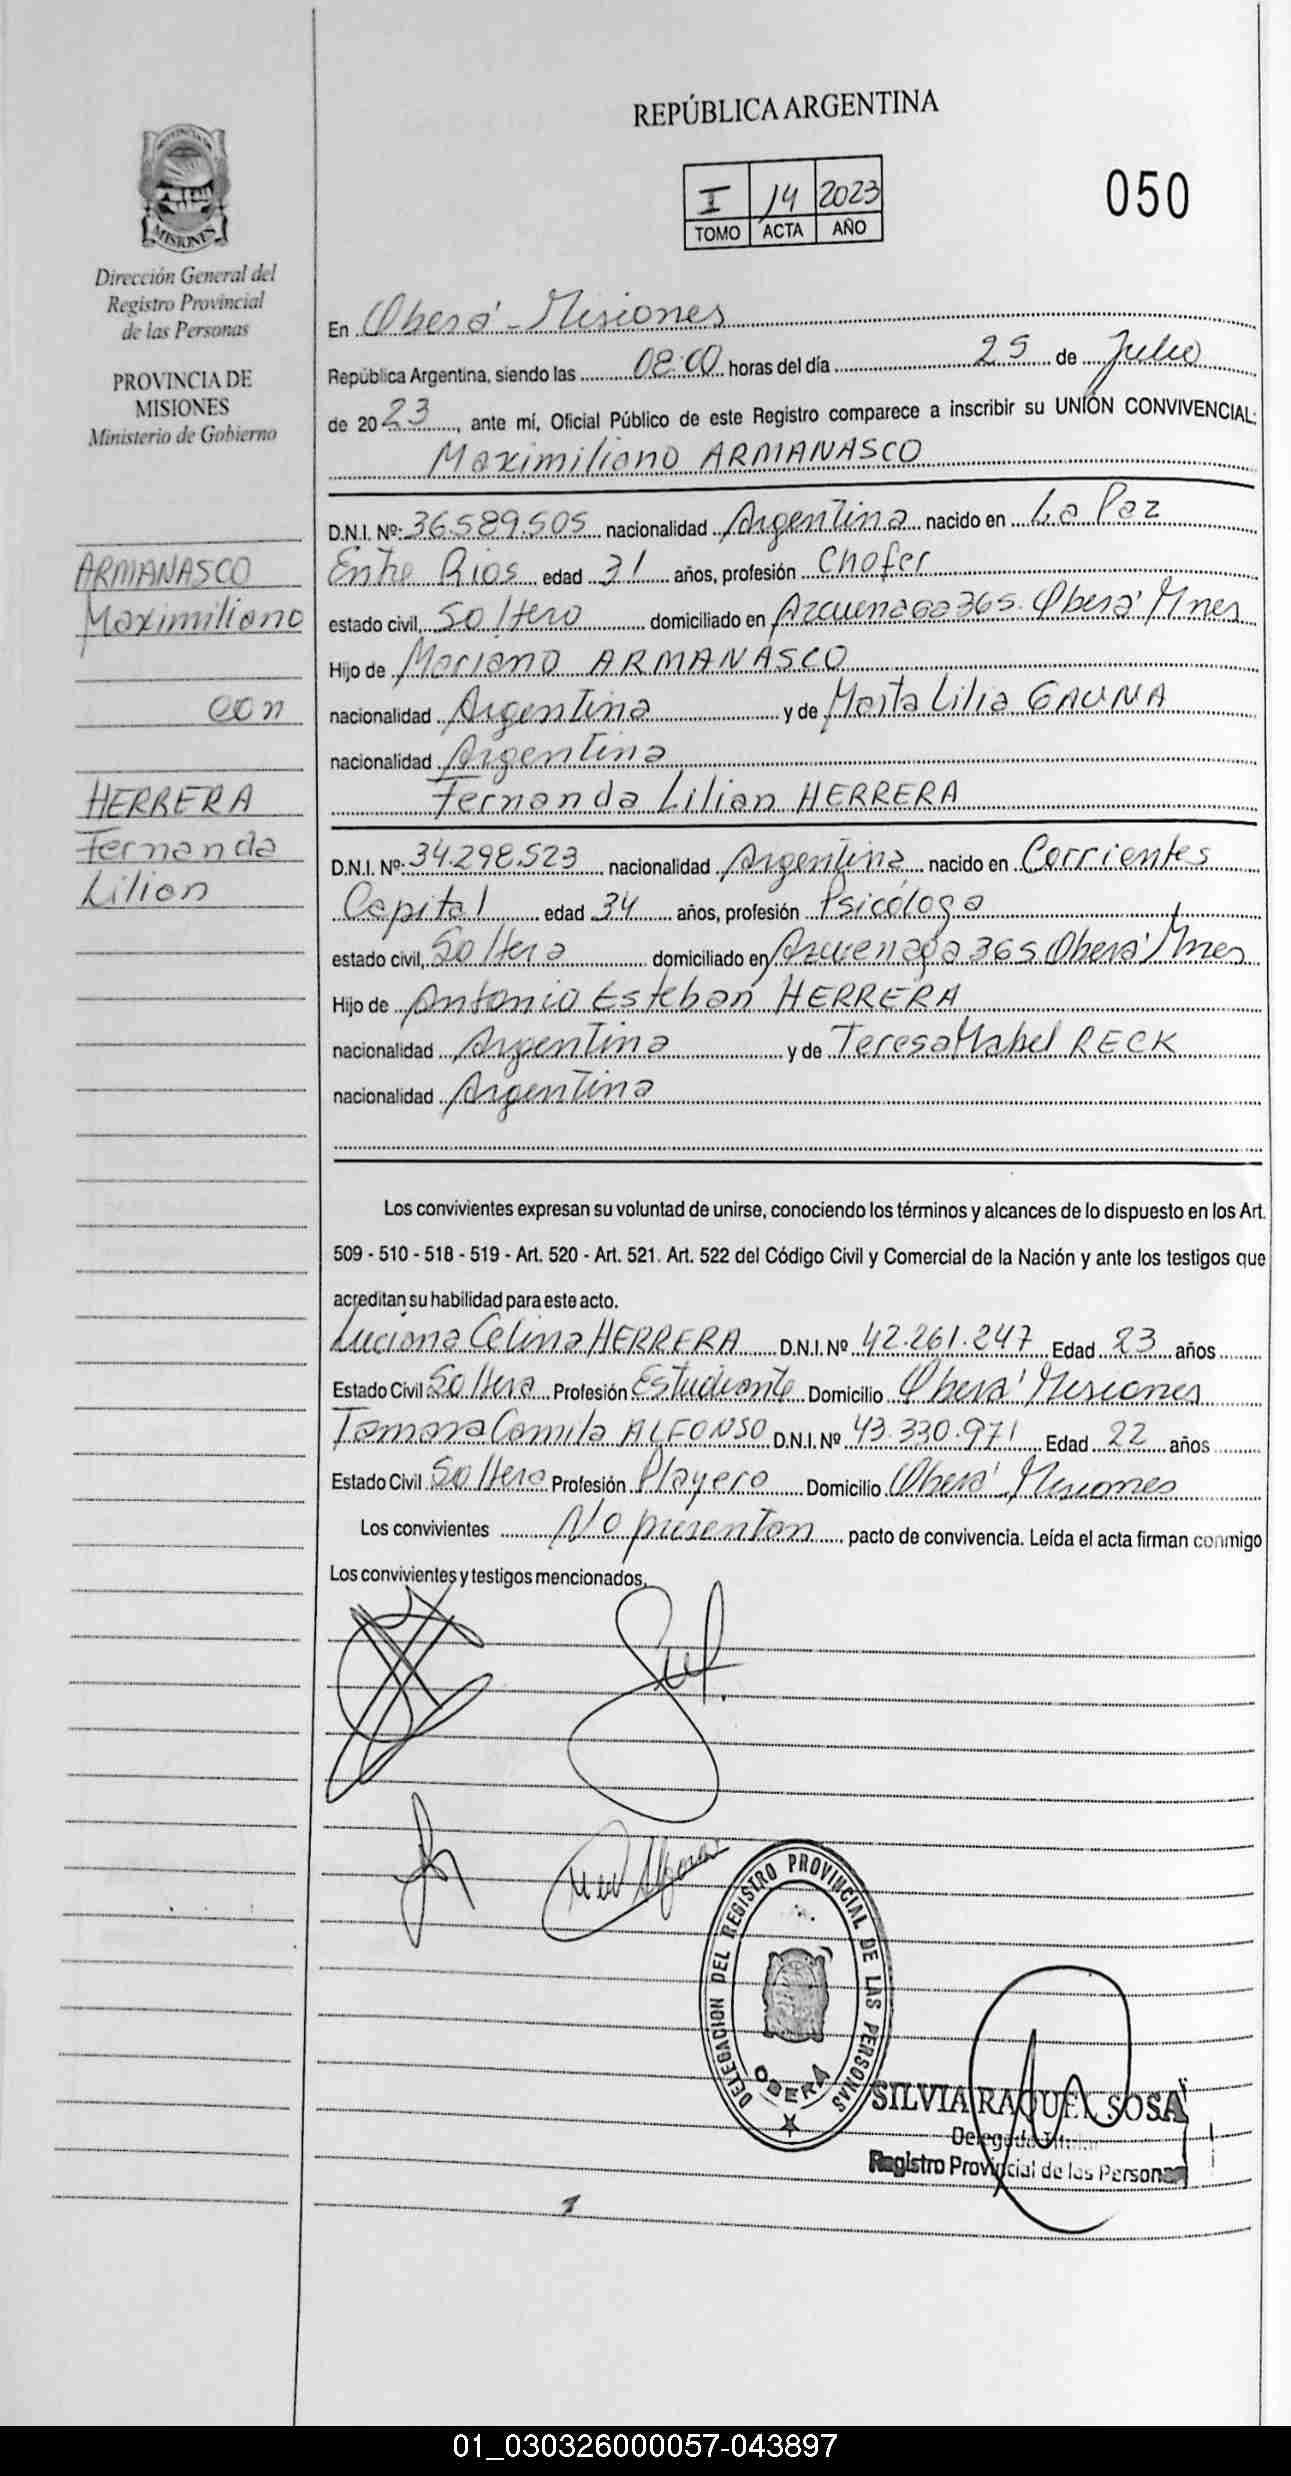 REPÚBLICA ARGENTINA
I 14 2023
TOMO ACTA AÑO
050
PROVINCIA DE MISIONES
Dirección General del
Registro Provincial
de las Personas
PROVINCIA DE
MISIONES
Ministerio de Gobierno
ARMANASCO
Maximiliano
con
HERRERA
Fernanda
Lilian
En Oberá - Misiones
República Argentina, siendo las 08:00 horas del día 25 de Julio
de 2023, ante mí, Oficial Público de este Registro comparece a inscribir su UNIÓN CONVIVENCIAL:
Maximiliano ARMANASCO
D.N.I. Nº: 36.589.505 nacionalidad Argentina nacido en La Paz
Entre Rios edad 31 años, profesión Chofer
estado civil, Soltero domiciliado en Azcuenaga 365. Oberá Mnes
Hijo de Mariano ARMANASCO
nacionalidad Argentina y de Marta Lilia GAUNA
nacionalidad Argentina
Fernanda Lilian HERRERA
D.N.I. Nº: 34.298.523 nacionalidad Argentina nacido en Corrientes
Capital edad 34 años, profesión Psicóloga
estado civil, Soltera domiciliado en Azcuenaga 365 Oberá Mnes
Hijo de Antonio Esteban HERRERA
nacionalidad Argentina y de Teresa Mabel RECK
nacionalidad Argentina
Los convivientes expresan su voluntad de unirse, conociendo los términos y alcances de lo dispuesto en los Art.
509 - 510 - 518 - 519 - Art. 520 - Art. 521. Art. 522 del Código Civil y Comercial de la Nación y ante los testigos que
acreditan su habilidad para este acto.
Luciana Celina HERRERA D.N.I. Nº 42.261.247 Edad 23 años
Estado Civil Soltera Profesión Estudiante Domicilio Oberá Misiones
Tamara Camila ALFONSO D.N.I. Nº 43.330.971 Edad 22 años
Estado Civil Soltera Profesión Playero Domicilio Oberá Misiones
Los convivientes No presentan pacto de convivencia. Leída el acta firman conmigo
Los convivientes y testigos mencionados.
DELEGACION DEL REGISTRO PROVINCIAL DE LAS PERSONAS
OBERÁ
SILVIA RAQUEL SOSA
Delegada Titular
Registro Provincial de las Personas
01_030326000057-043897